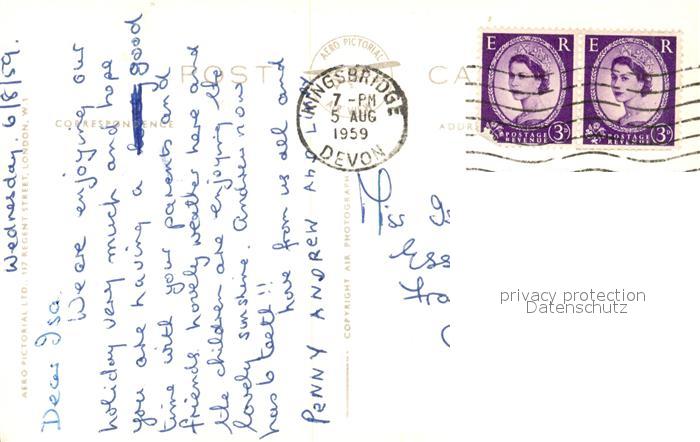 Wednesday. 6/8/59.
Dear Isa.
We are enjoying our
holiday very much and hope
you are having a good
time with your parents and
friends. Lovely weather here and
the children are enjoying the
lovely sunshine. Andrew now
has 6 teeth!!
love from us all and
PENNY ANDREW AND
POST CA
CORRESPONDENCE
ADDRE
AERO PICTORIAL LTD., 137 REGENT STREET, LONDON, W.1
AERO PICTORIAL
COPYRIGHT AIR PHOTOGRAPH
KINGSBRIDGE
7 - PM
5 AUG
1959
DEVON
E R
POSTAGE
REVENUE
3D
E R
POSTAGE
REVENUE
3D
privacy protection
Datenschutz